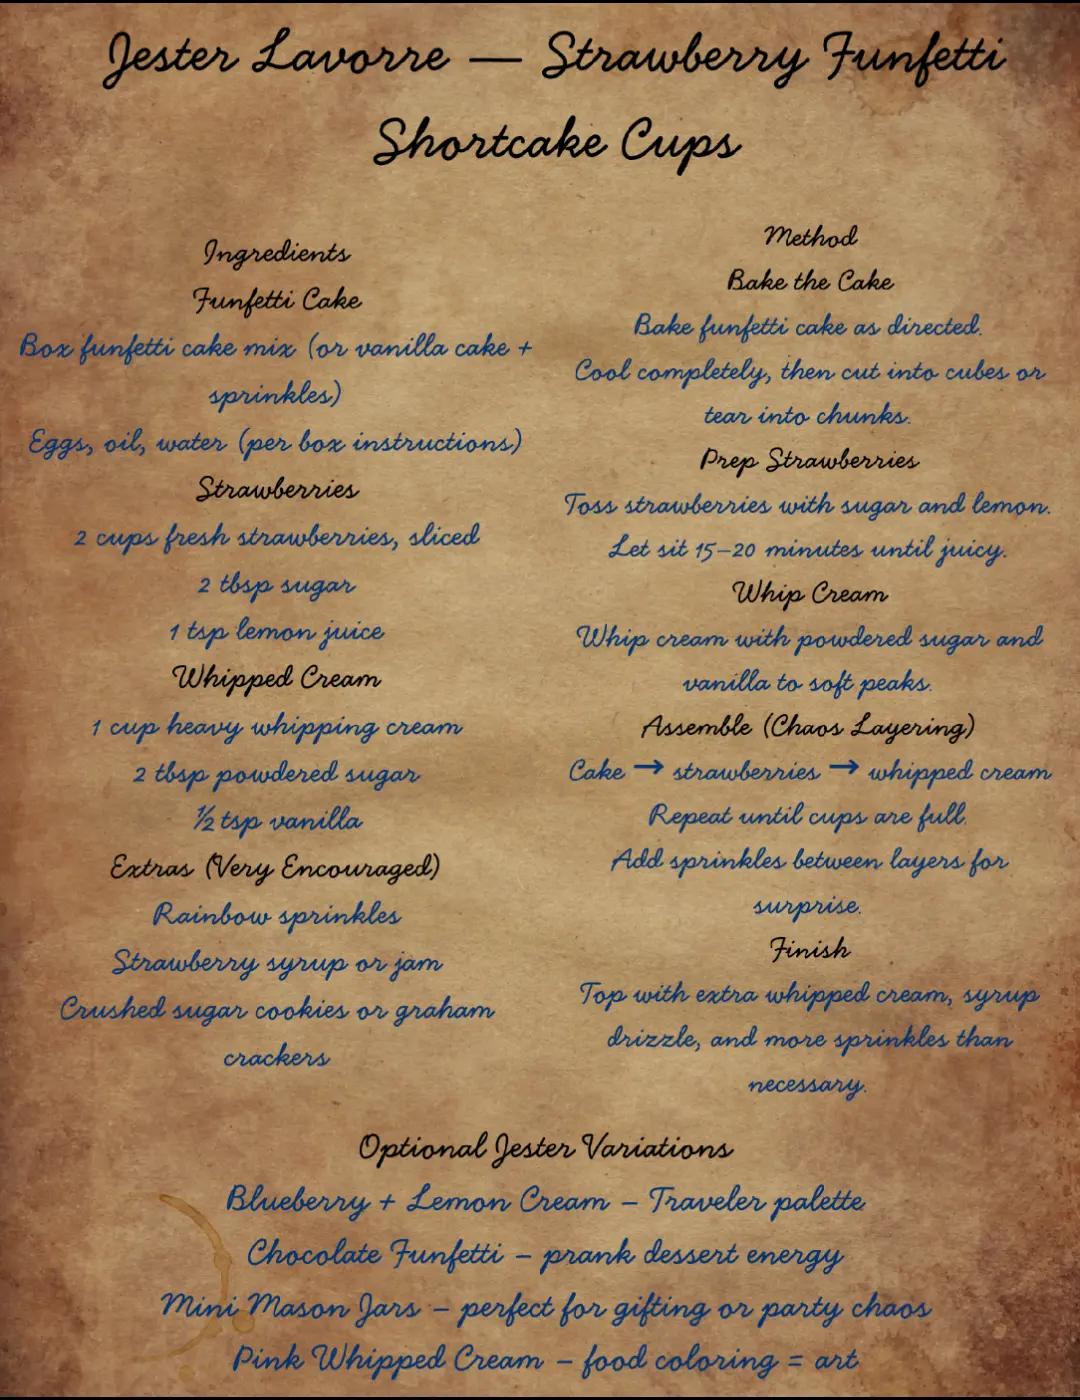 Jester Lavorre — Strawberry Funfetti
Shortcake Cups
Ingredients
Funfetti Cake
Box funfetti cake mix (or vanilla cake +
sprinkles)
Eggs, oil, water (per box instructions)
Strawberries
2 cups fresh strawberries, sliced
2 tbsp sugar
1 tsp lemon juice
Whipped Cream
1 cup heavy whipping cream
2 tbsp powdered sugar
½ tsp vanilla
Extras (Very Encouraged)
Rainbow sprinkles
Strawberry syrup or jam
Crushed sugar cookies or graham
crackers
Method
Bake the Cake
Bake funfetti cake as directed.
Cool completely, then cut into cubes or
tear into chunks.
Prep Strawberries
Toss strawberries with sugar and lemon.
Let sit 15–20 minutes until juicy.
Whip Cream
Whip cream with powdered sugar and
vanilla to soft peaks.
Assemble (Chaos Layering)
Cake → strawberries → whipped cream
Repeat until cups are full.
Add sprinkles between layers for
surprise.
Finish
Top with extra whipped cream, syrup
drizzle, and more sprinkles than
necessary.
Optional Jester Variations
Blueberry + Lemon Cream – Traveler palette
Chocolate Funfetti – prank dessert energy
Mini Mason Jars – perfect for gifting or party chaos
Pink Whipped Cream – food coloring = art